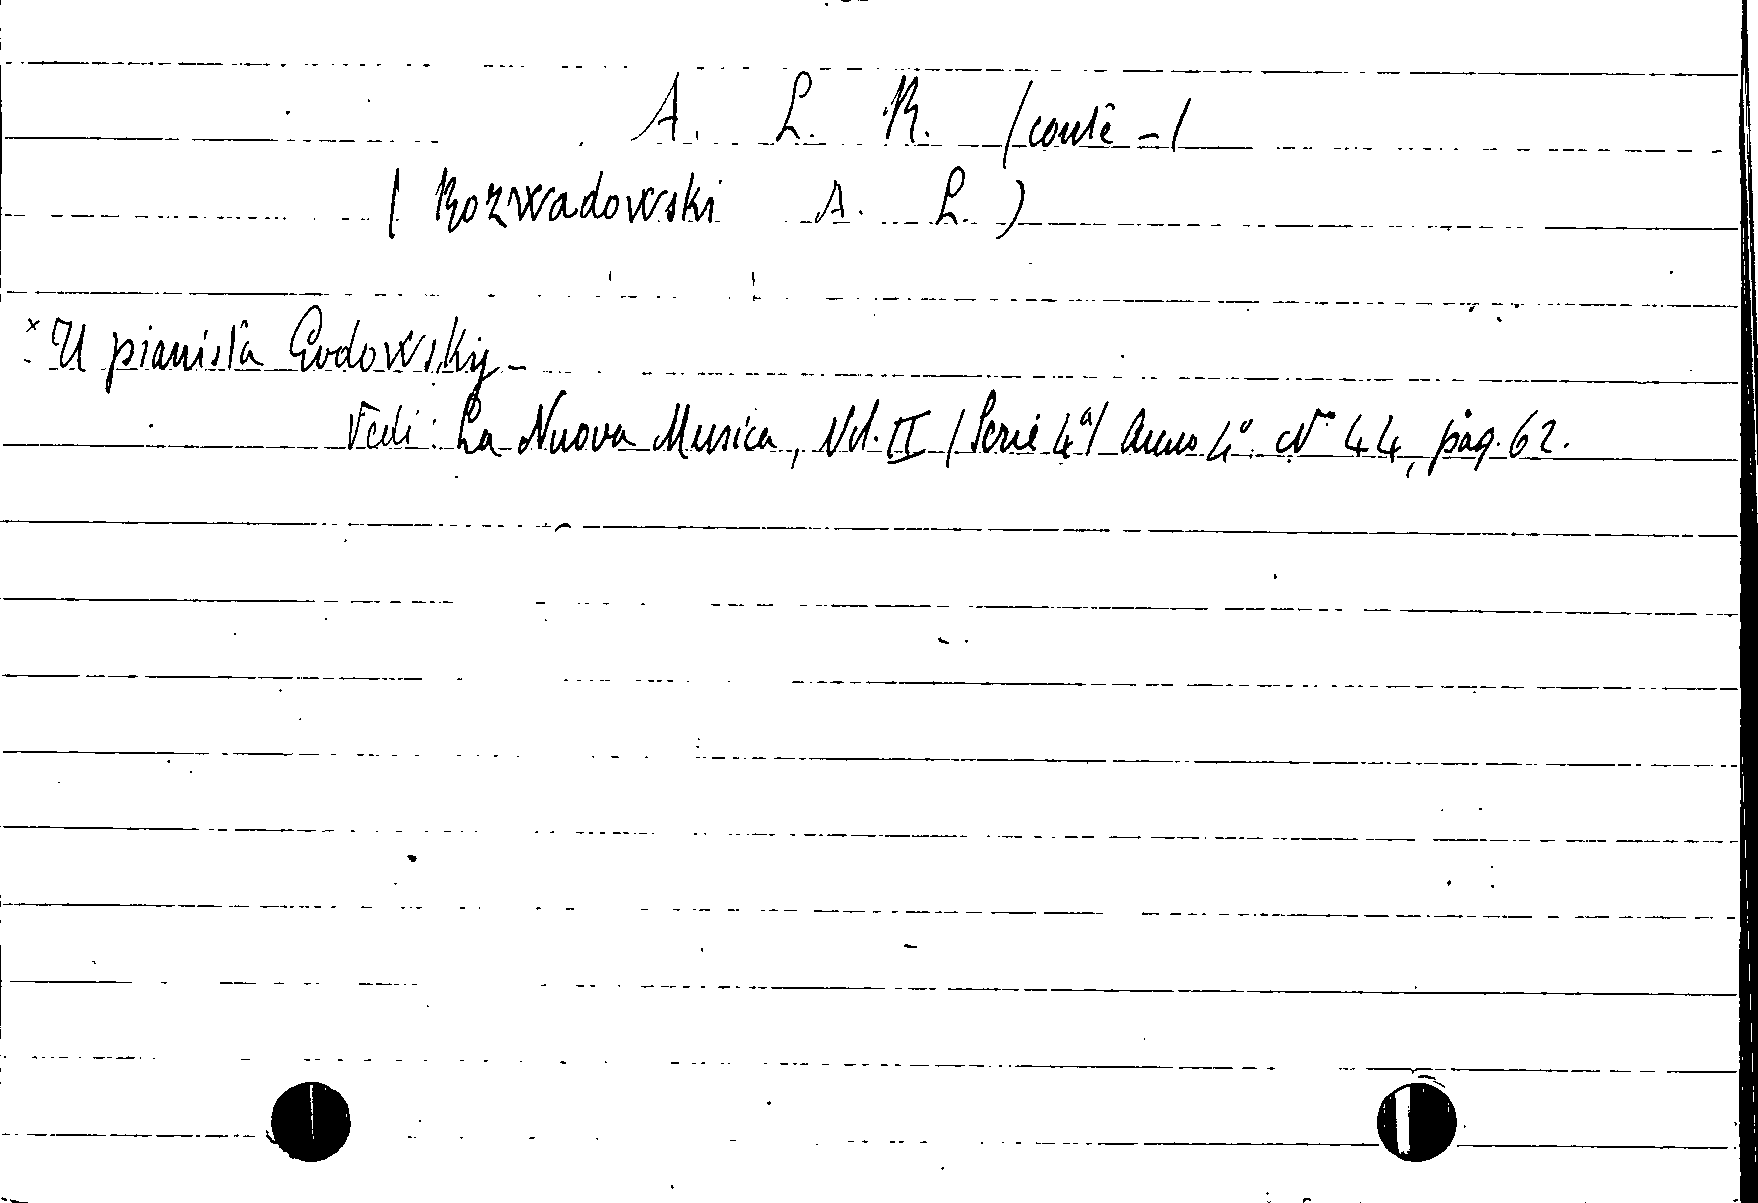 A. L. R. (conte -)
(Rozwadowski A. L.)
Il pianista Godowsky -
Vedi: La Nuova Musica, Vol. II (Serie 4ª) Anno 4º Nº 44, pag. 62.